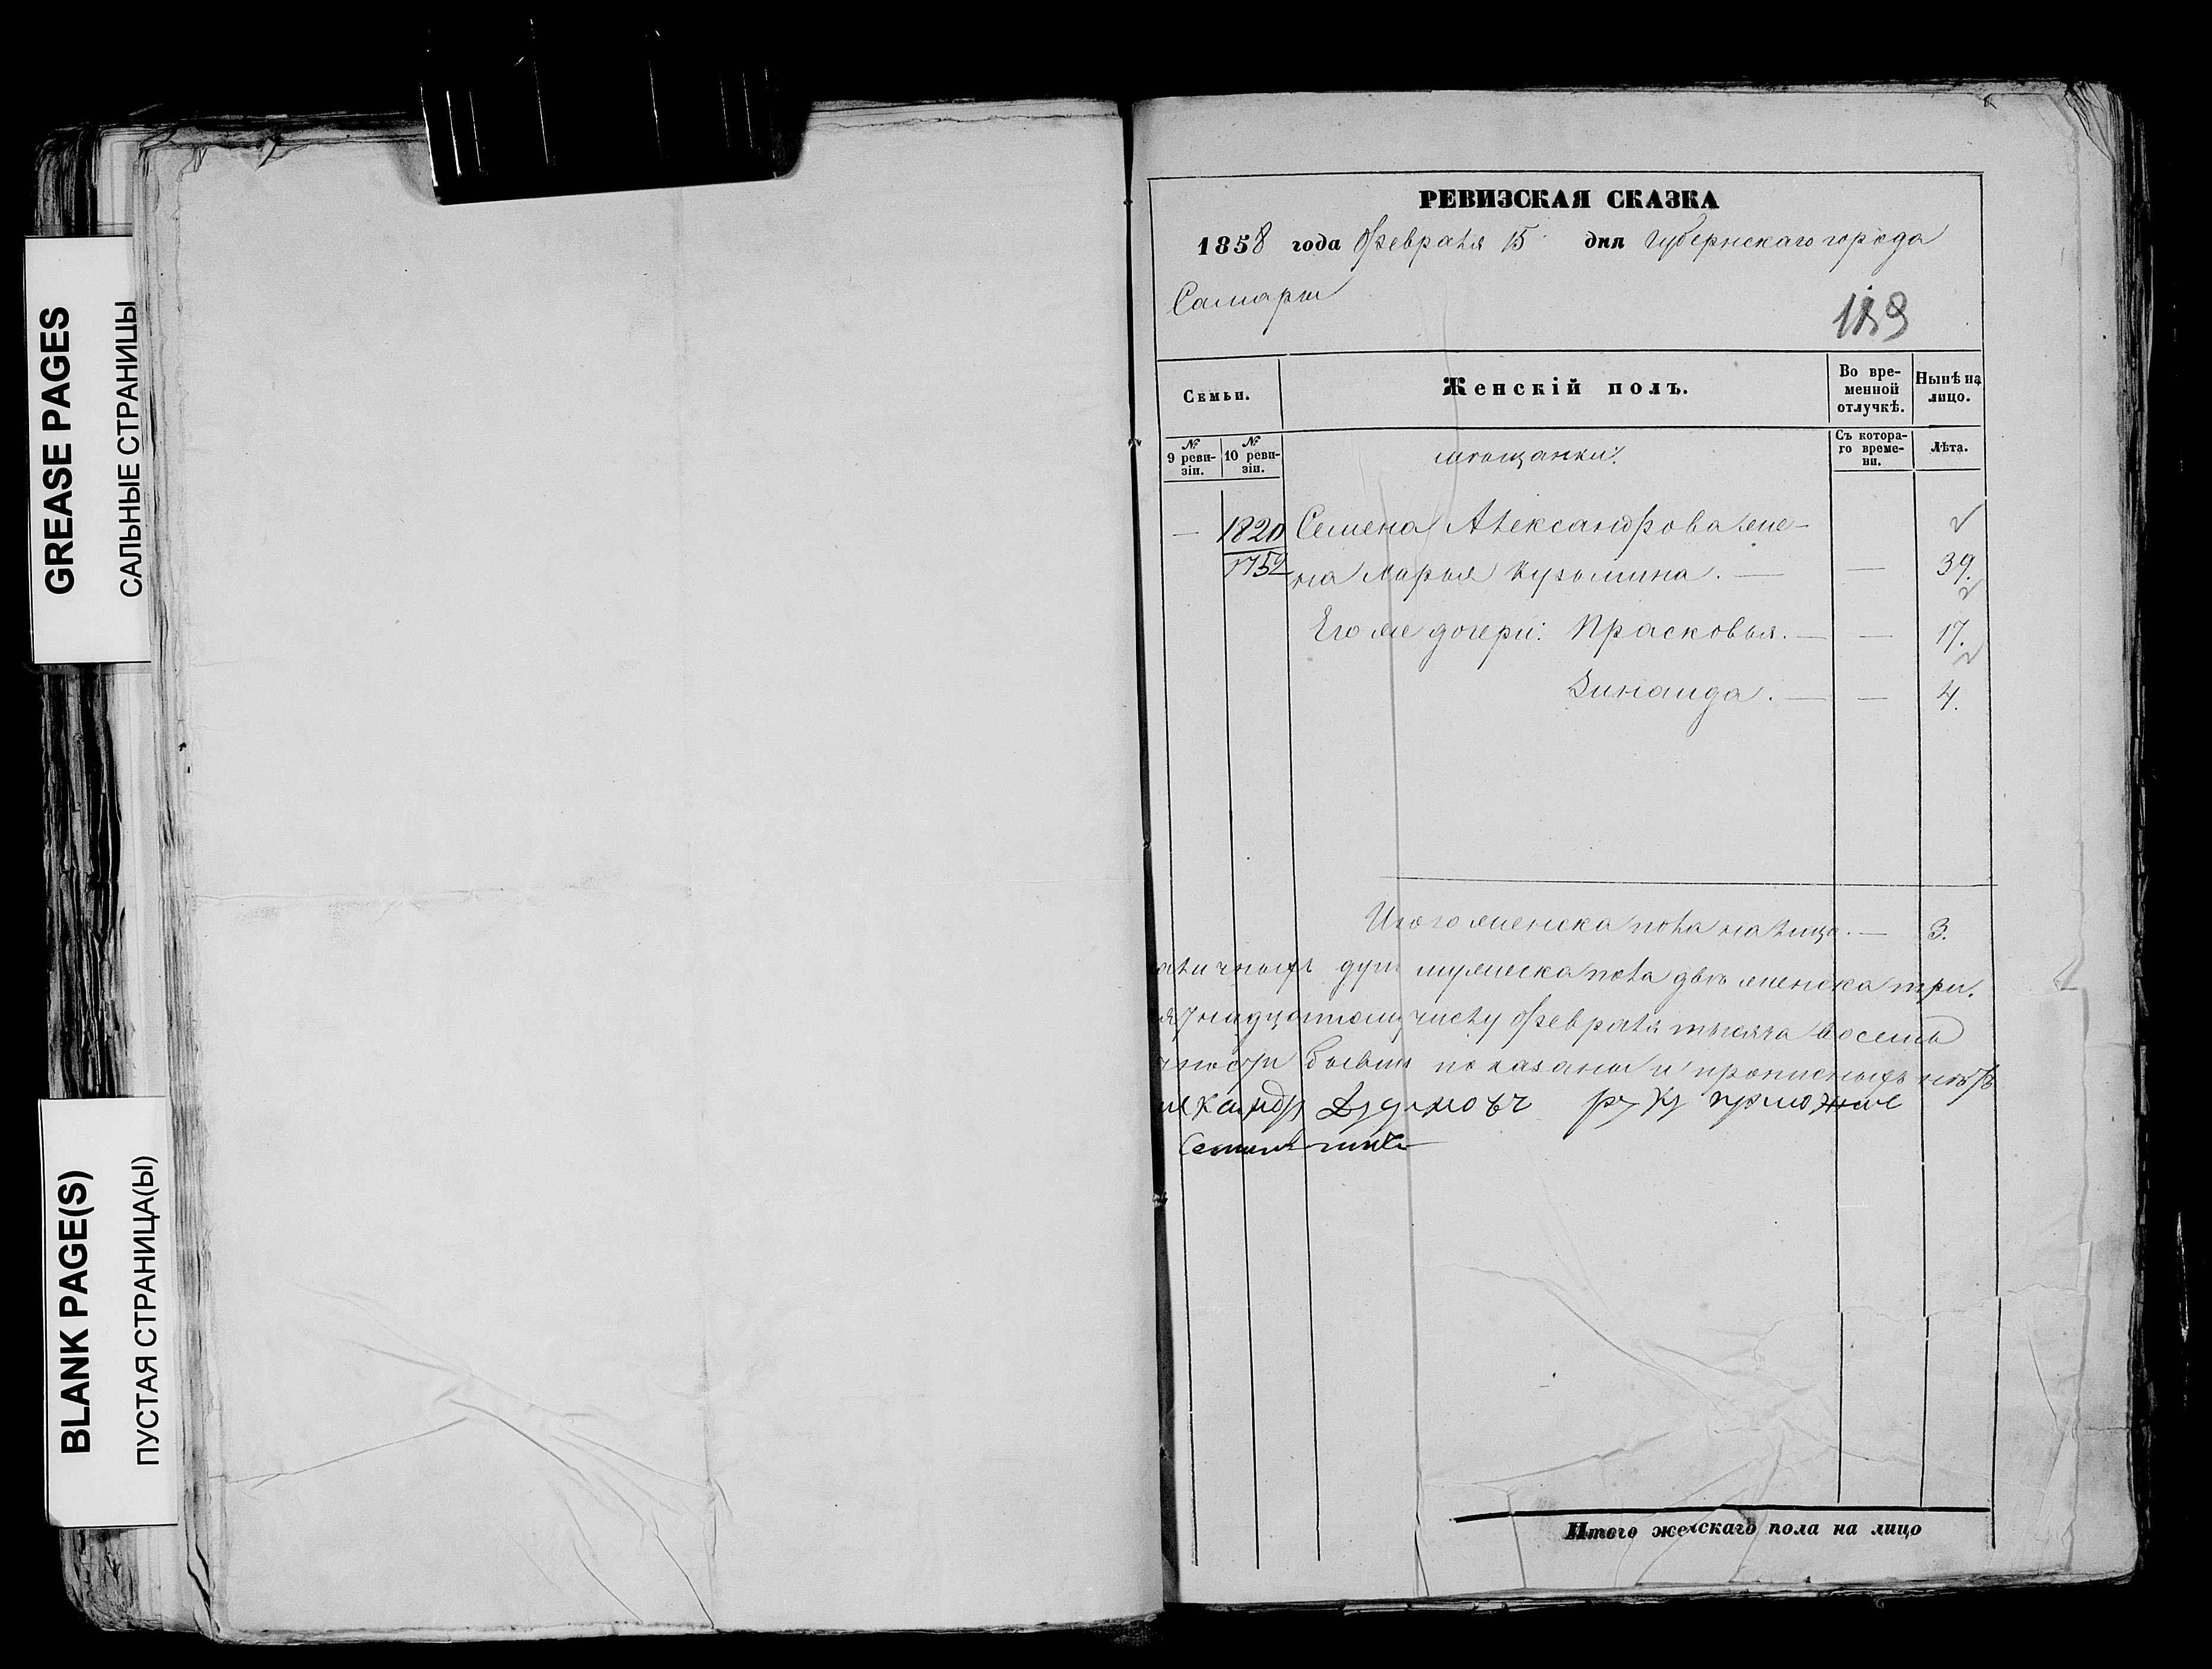 GREASE PAGES
САЛЬНЫЕ СТРАНИЦЫ
BLANK PAGE(S)
ПУСТАЯ СТРАНИЦА(Ы)
РЕВИЗСКАЯ СКАЗКА
1858 года Февраля 15 дня Губернскаго города
Самары
Семьи.
Женскій полъ.
Во вре-
менной
отлучкѣ.
Нынѣ на
лицо.
№
9 реви-
зіи.
№
10 реви-
зіи.
мѣщанки:
Съ котора-
го време-
ни.
Лѣта.
— 1820 Семена Александрова же-
1752 на Марья Кузьмина. — — 39.
Его же дочери: Прасковья. — — 17.
Зинаида. — — 4.
Итого женска пола на лицо. — 3.
душ мужеска пола двѣ женска три.
надцатому числу Февраля тысяча восемь
показаны и прописныхъ нѣтъ
руку приложилъ
Итого женскаго пола на лицо